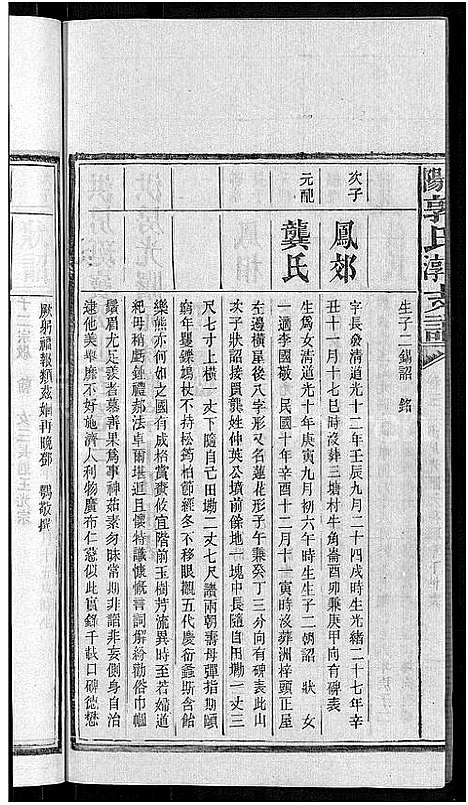 陽郭氏淳支譜
生子二錫詔　銘
次子
鳳郊
字長發清道光十二年壬辰九月二十四戌時生光緒二十七年辛
丑十一月十七巳時沒葬三塘村牛角崙酉卯兼庚甲向有碑表
元配
龔氏
生爲女清道光十年庚寅九月初六午時生生子二朝詔　狀女
一適李國敬　民國十年辛酉十二月十一寅時沒葬洲梓頭正屋
左邊橫星後八字形又名蓮花形子午兼癸丁三分向有碑表此山
次子狀詔接買龔姓仲英公墳前餘地一塊中長隨自田墈一丈三
尺七寸上橫一丈下隨自己田墈二丈七尺　讚兩朝壽母彈指期頤
窮年矍鑠鳩杖不持松筠柏節經冬不移眼觀五代慶衍螽斯含飴
樂態亦何如之國有成格賞齋攸宜階前玉樹芳流異時至若婦道
祀母梢虧鍾禮郝法卓爾堪近且懷特識慷慨言詞解紛勸俗巾幗
鬚眉尤足羨者慕善果爲事神茹素勿昧常期非詔非妄側身自治
逮他美舉靡不好施濟人利物廣布仁慈似此實錄千載口碑德懋
厥躬福報類茲姻再晚鄧　鸚敬撰